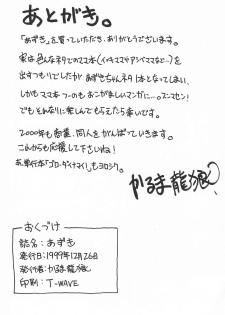 あとがき。
「あずき」を買っていただき、ありがとうございます。
実は色んなネタでのママ本(イキママやアンママなど…)を
出すつもりでしたが あずきちゃんネタ1本となってしまい、
しかもママ本つのも おこがましいマンガに…。スンマセン!
でもそれなりに楽しんでもらえたら幸いです。
2000年も商業、同人をがんばっていきます。
これからも応援して下さいね!
あ、単行本「ゴローダイナマイ!」もヨロシク。
かるま龍狼
おくづけ
誌名:あずき
発行日:1999年12月26日
発行者:かるま龍狼
印刷:T-WAVE